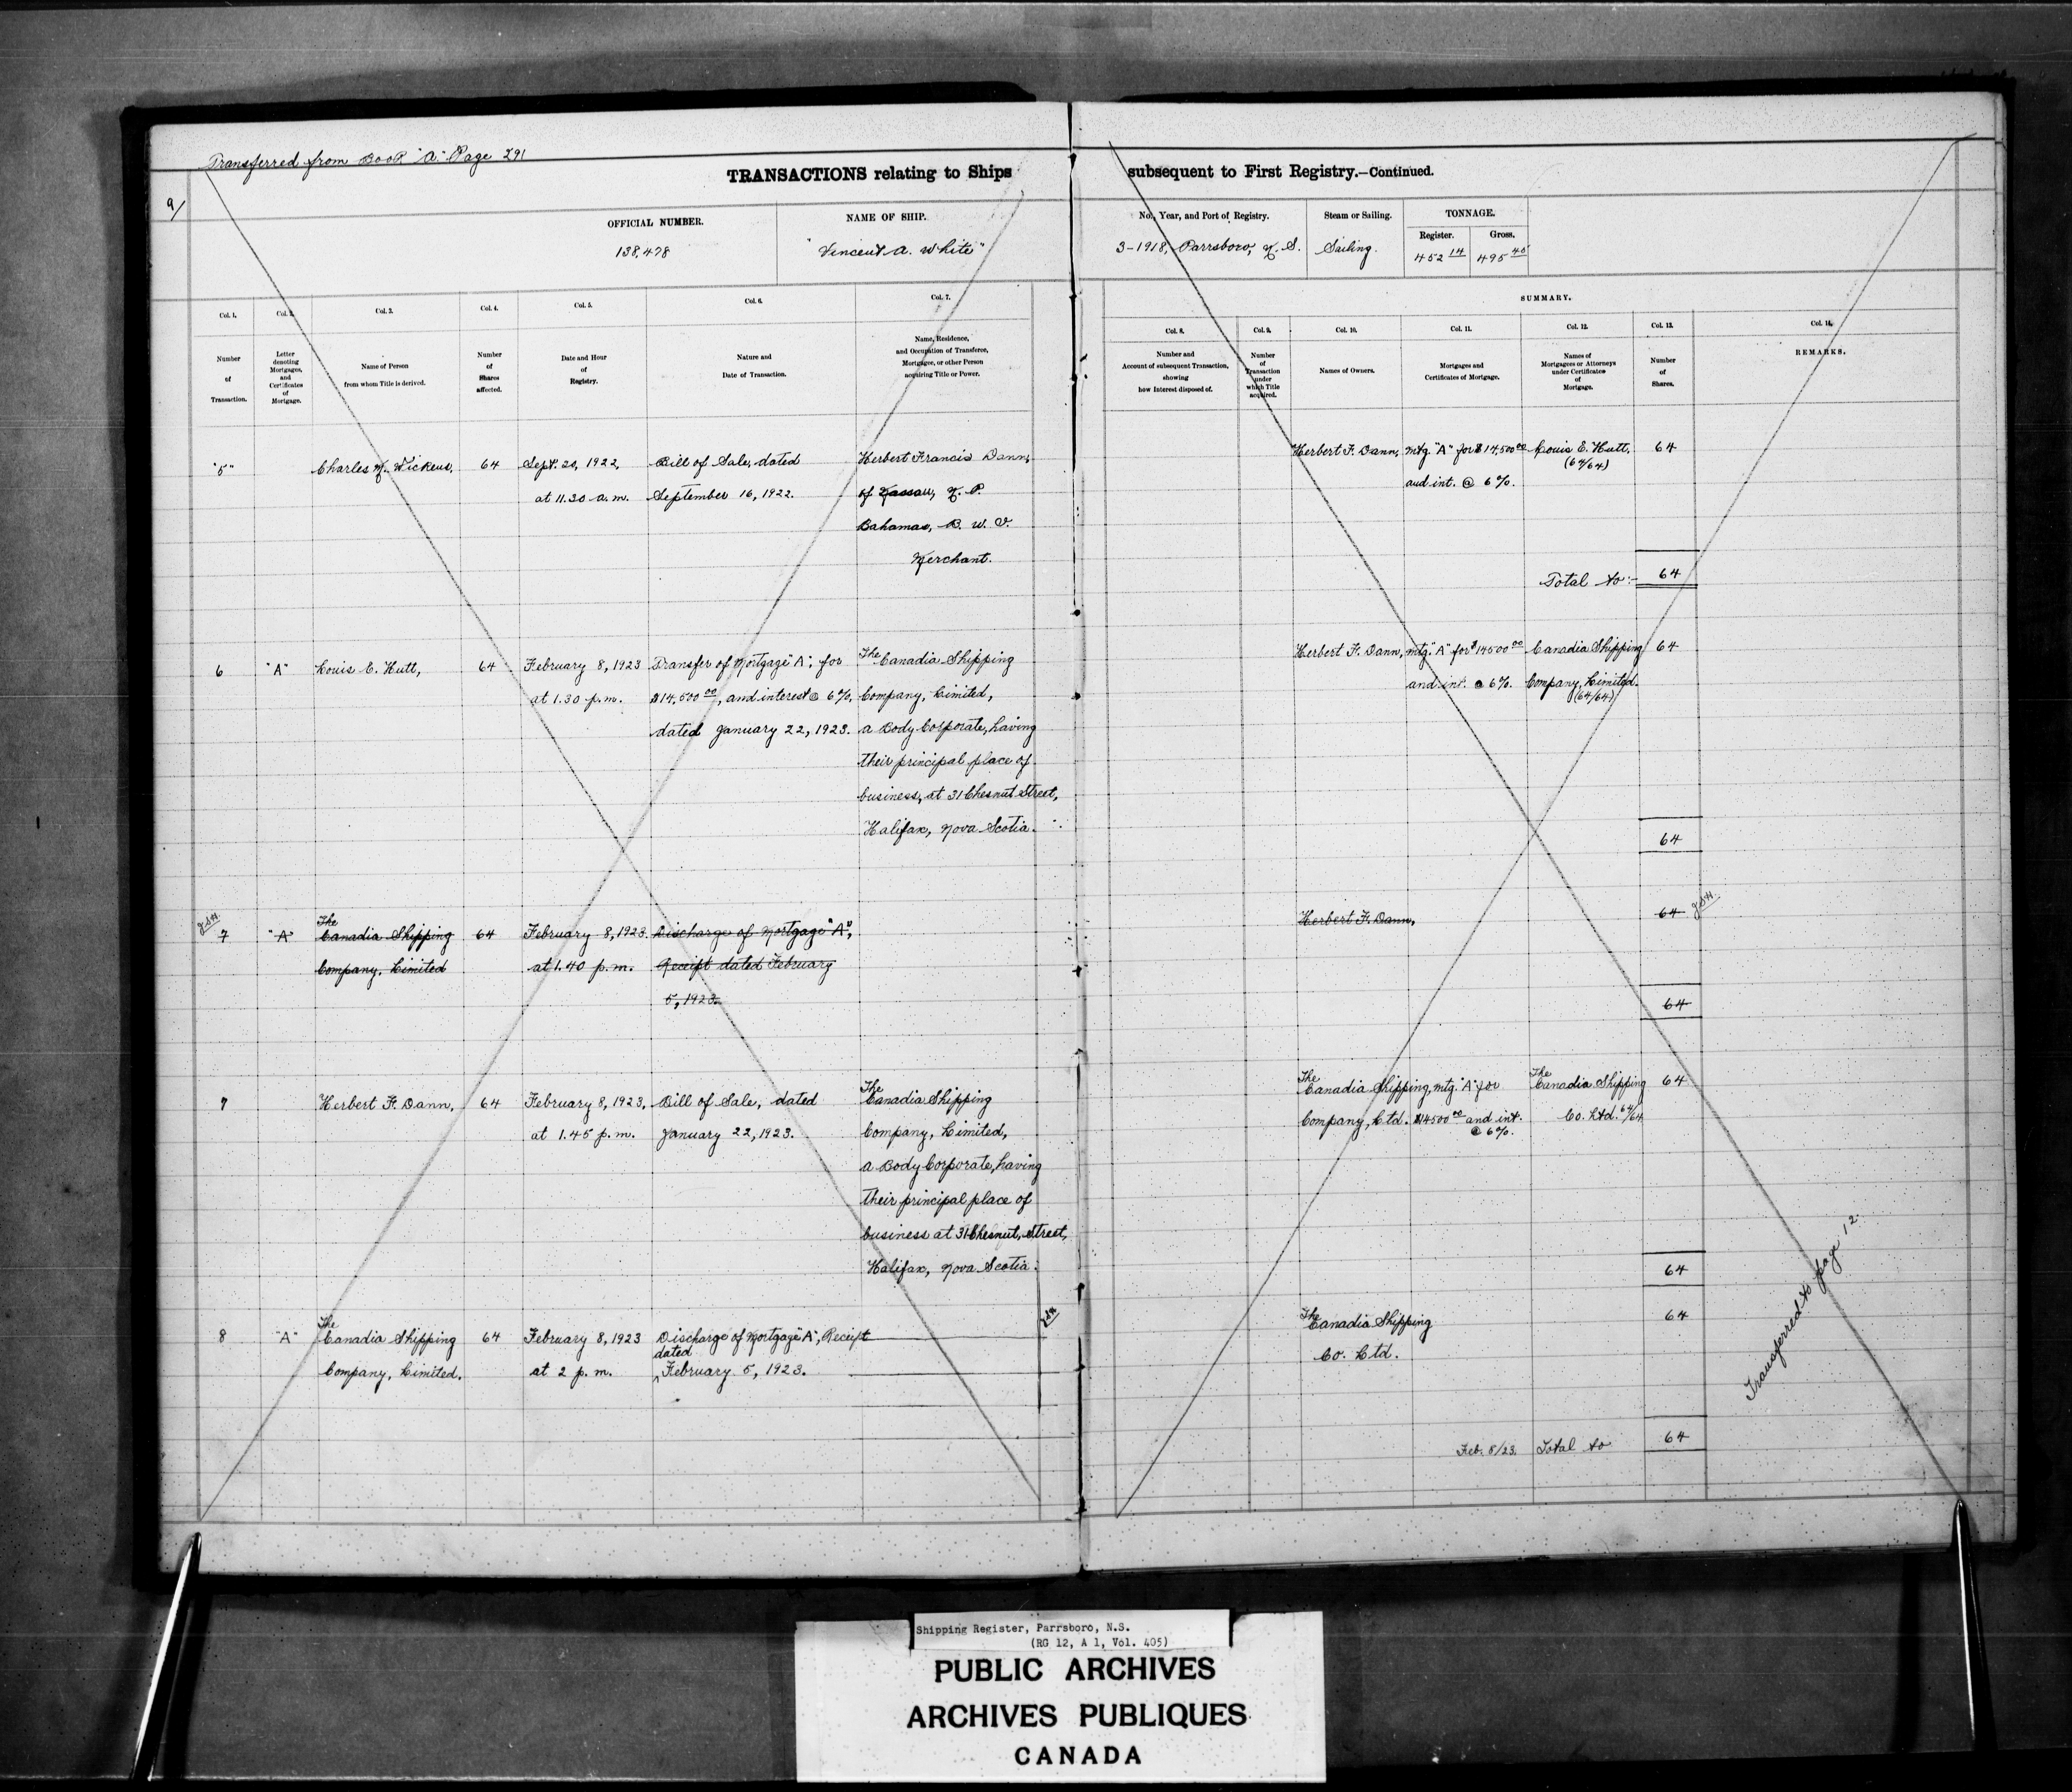 Transferred from Book "A" Page 291
9/
TRANSACTIONS relating to Ships
subsequent to First Registry.—Continued.
OFFICIAL NUMBER.
138,478
NAME OF SHIP.
"Vincent A. White"
No., Year, and Port of Registry.
3-1918, Parrsboro, N. S.
Steam or Sailing.
Sailing.
TONNAGE.
Register.
452 14
Gross.
495 45
SUMMARY.
Col. 1.
Number
of
Transaction.
Col. 2.
Letter
denoting
Mortgages,
and
Certificates
of
Mortgage.
Col. 3.
Name of Person
from whom Title is derived.
Col. 4.
Number
of
Shares
affected.
Col. 5.
Date and Hour
of
Registry.
Col. 6.
Nature and
Date of Transaction.
Col. 7.
Name, Residence,
and Occupation of Transferee,
Mortgagee, or other Person
acquiring Title or Power.
Col. 8.
Number and
Account of subsequent Transaction,
showing
how Interest disposed of.
Col. 9.
Number
of
Transaction
under
which Title
acquired.
Col. 10.
Names of Owners.
Col. 11.
Mortgages and
Certificates of Mortgage.
Col. 12.
Names of
Mortgagees or Attorneys
under Certificates
of
Mortgage.
Col. 13.
Number
of
Shares.
Col. 14.
REMARKS.
"5"
Charles M. Wickens,
64
Sept. 20, 1922,
at 11.30 a.m.
Bill of Sale, dated
September 16, 1922.
Herbert Francis Dann,
of Nassau, N. P.
Bahamas, B. W. I.
Merchant.
Herbert F. Dann,
mtg. "A" for $14,500 00
and int. @ 6%.
Louis E. Hutt,
(64/64)
64
Total to:- 64
6
"A"
Louis E. Hutt,
64
February 8, 1923
at 1.30 p.m.
Transfer of Mortgage "A", for
$14,500 00, and interest @ 6%,
dated January 22, 1923.
The Canadia Shipping
Company, Limited,
a Body Corporate, having
their principal place of
business, at 31 Chesnut Street,
Halifax, Nova Scotia.
Herbert F. Dann,
mtg. "A" for $14500 00
and int. @ 6%.
Canadia Shipping
Company, Limited.
(64/64)
64
64
7
"A"
The
Canadia Shipping
Company, Limited
64
February 8, 1923.
at 1.40 p.m.
Discharge of Mortgage "A",
Receipt dated February
5, 1923.
Herbert F. Dann,
64
64
7
Herbert F. Dann,
64
February 8, 1923,
at 1.45 p.m.
Bill of Sale, dated
January 22, 1923.
The
Canadia Shipping
Company, Limited,
a Body Corporate, having
their principal place of
business at 31 Chesnut, Street,
Halifax, Nova Scotia.
The
Canadia Shipping,
Company, Ltd.
mtg. "A" for
$14500 00 and int.
@ 6%.
The
Canadia Shipping
Co. Ltd. 64/64
64
64
8
"A"
The
Canadia Shipping
Company, Limited.
64
February 8, 1923
at 2 p.m.
Discharge of Mortgage "A", Receipt
dated
February 5, 1923.
The
Canadia Shipping
Co. Ltd.
64
Feb. 8/23. Total to 64
Transferred to page 12.
Shipping Register, Parrsboro, N.S.
(RG 12, A 1, Vol. 405)
PUBLIC ARCHIVES
ARCHIVES PUBLIQUES
CANADA